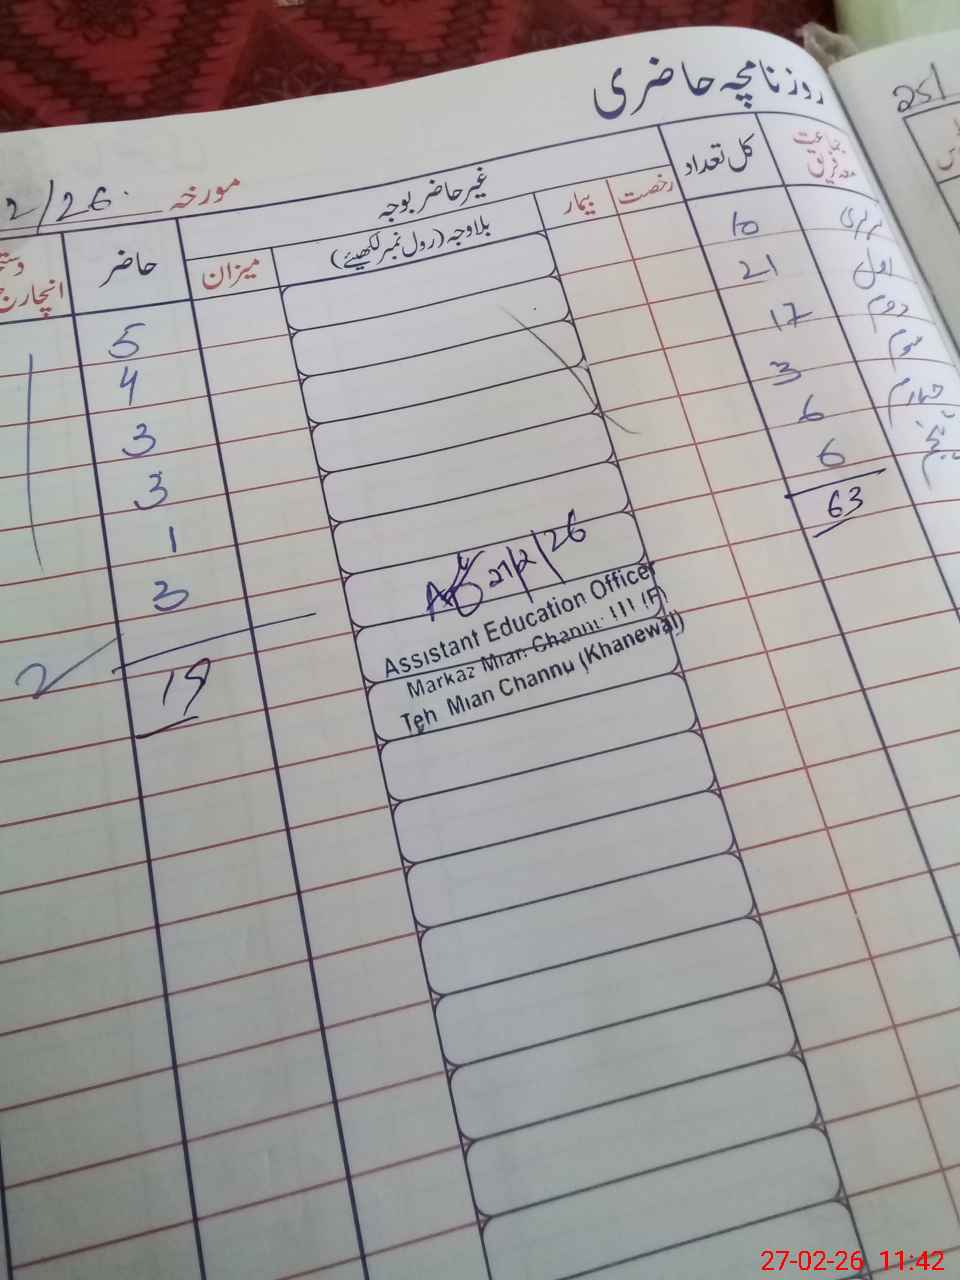 روزنامچہ حاضری
251
2/26 مورخہ
جماعت معہ فریق
کل تعداد
غیر حاضر بوجہ
رخصت
بیمار
بلاوجہ (رول نمبر لکھیئے)
میزان
حاضر
انچارج
اول 21 4
دوم 17 3
سوم 3 3
چہارم 6 1
پنجم 6 3
63 19
10 5
2/26
Assistant Education Officer
Markaz Mian Channu III (F)
Teh Mian Channu (Khanewal)
27-02-26 11:42